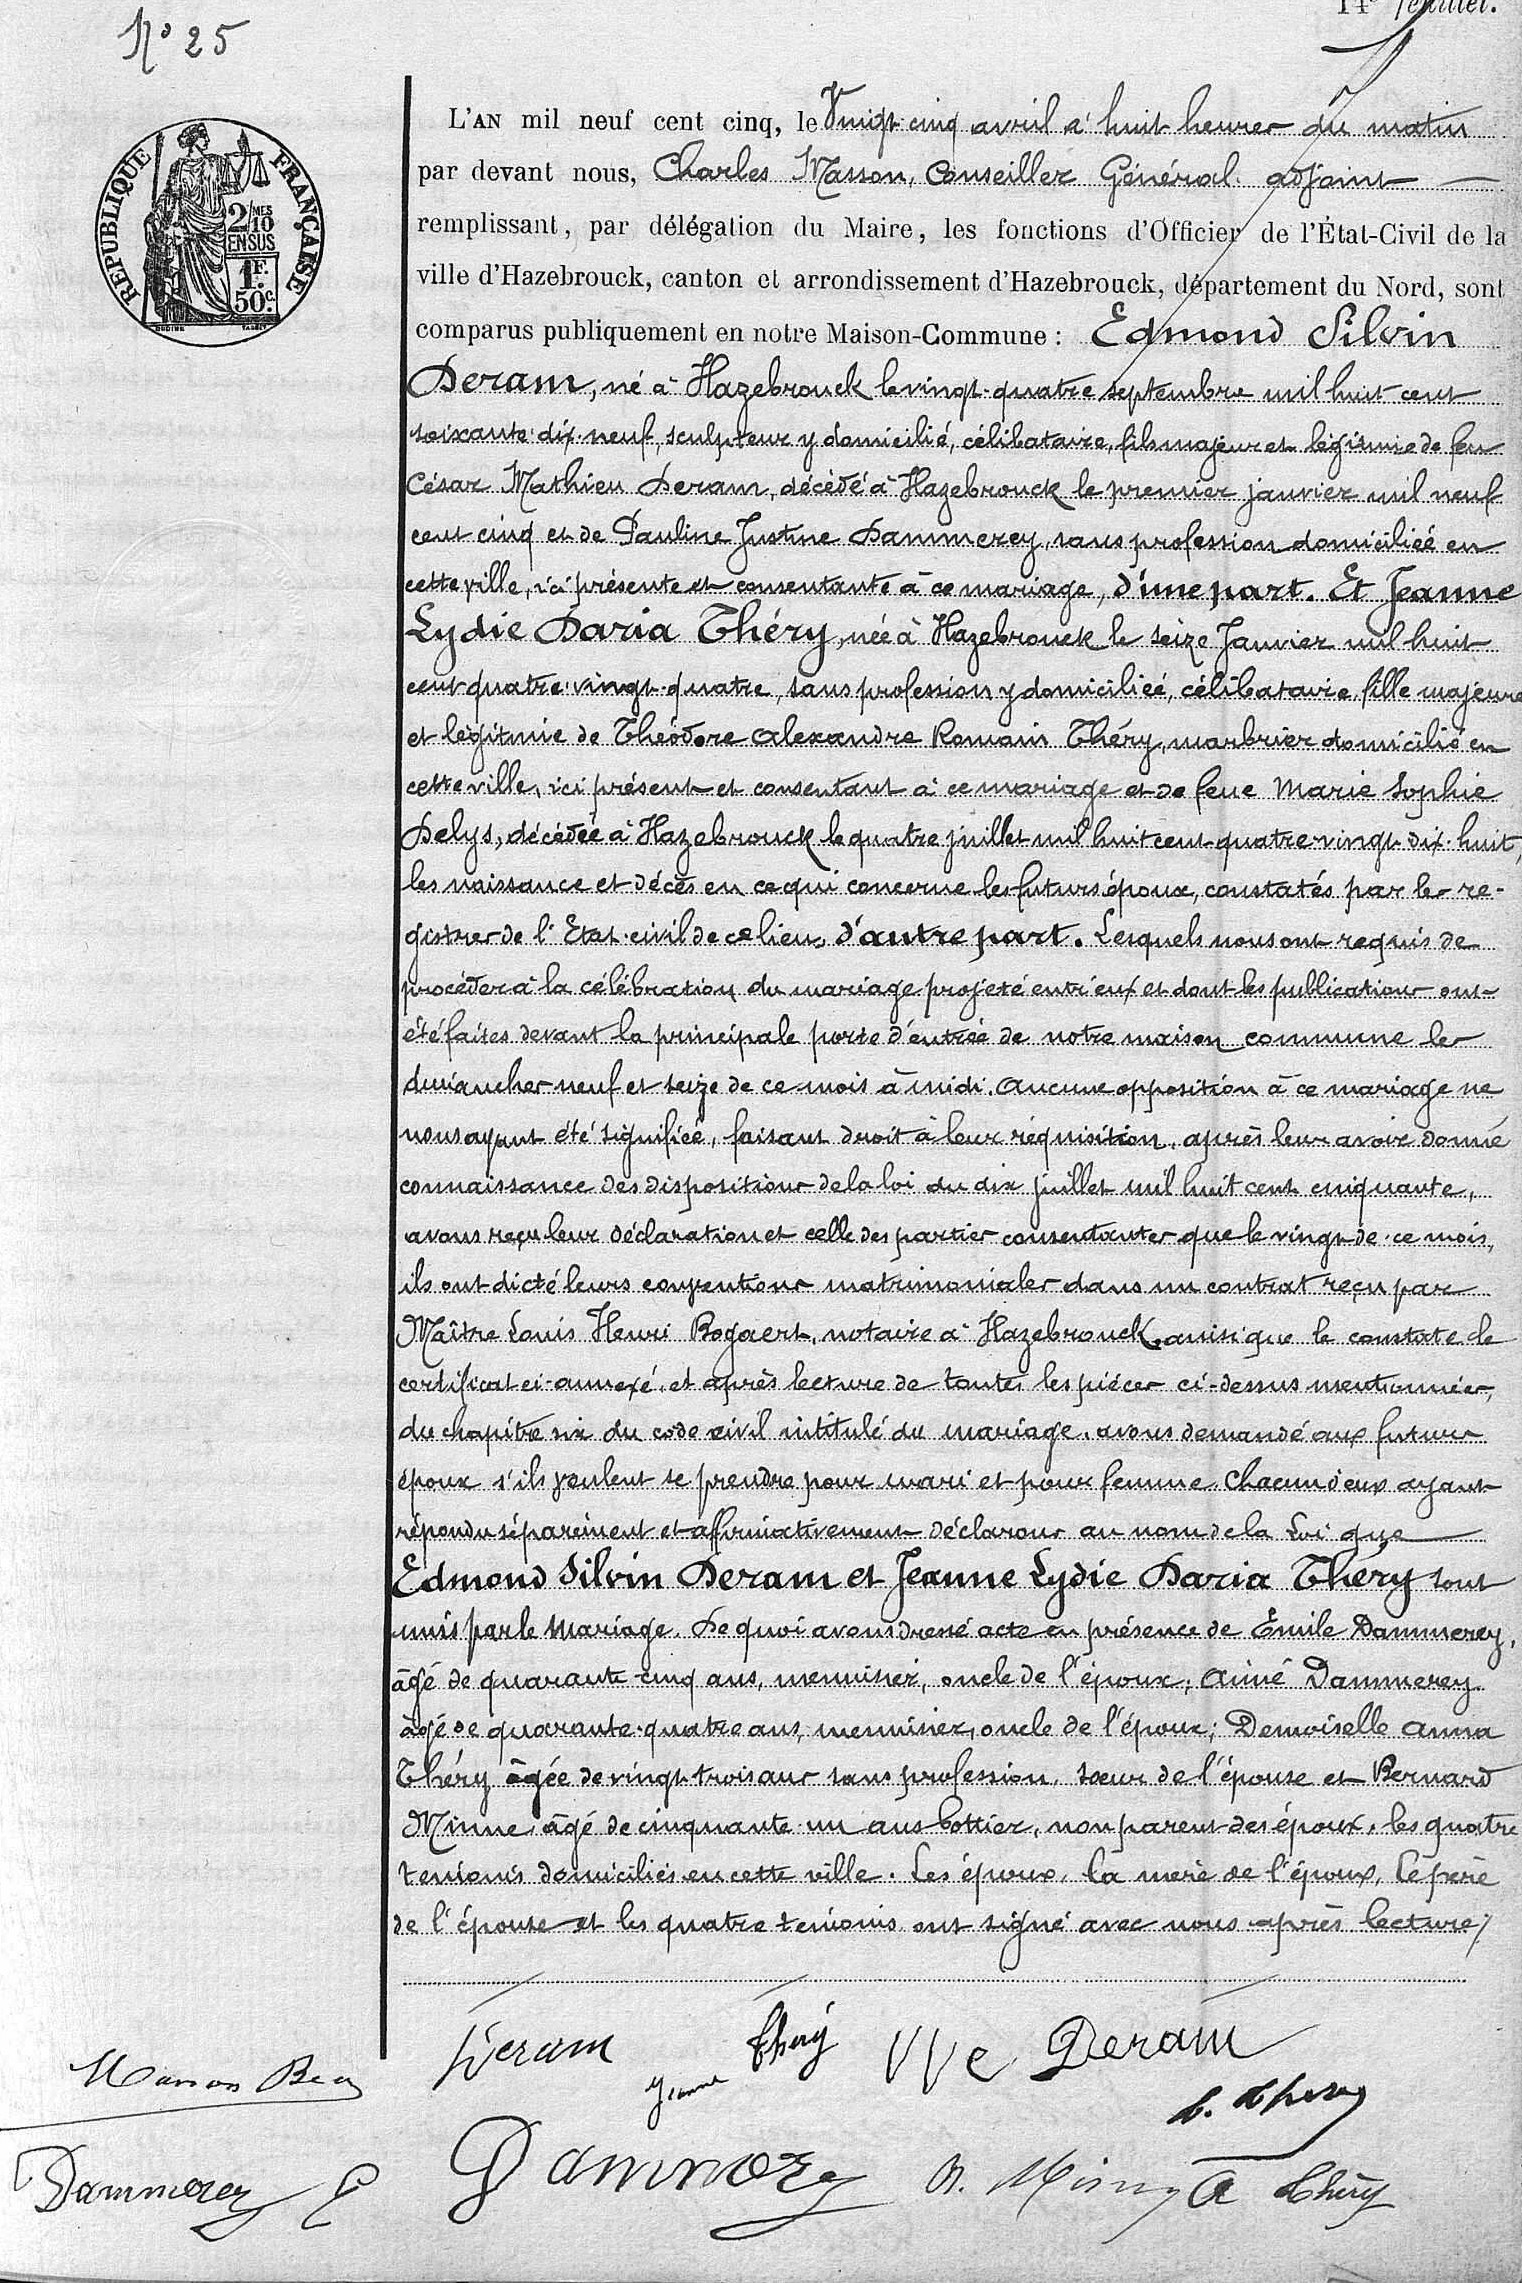 14e feuillet.
No 25
RÉPUBLIQUE FRANÇAISE
2/10 MES
EN SUS
1F.
50c.
L'AN mil neuf cent cinq, le Vingt cinq avril à huit heures du matin
par devant nous, Charles Masson, Conseiller Général adjoint
remplissant, par délégation du Maire, les fonctions d'Officier de l'État-Civil de la
ville d'Hazebrouck, canton et arrondissement d'Hazebrouck, département du Nord, sont
comparus publiquement en notre Maison-Commune : Edmond Silvin
Deram, né à Hazebrouck le vingt-quatre septembre mil huit cent
soixante dix neuf, sculpteur y domicilié, célibataire, fils majeur et légitime de feu
César Mathieu Deram, décédé à Hazebrouck le premier janvier mil neuf
cent cinq et de Pauline Justine Dammerey, sans profession domiciliée en
cette ville, ici présente et consentante à ce mariage, d'une part. Et Jeanne
Lydie Daria Théry, née à Hazebrouck le seize Janvier mil huit
cent quatre-vingt-quatre, sans profession y domiciliée, célibataire, fille majeure
et légitime de Théodore Alexandre Romain Théry, marbrier domicilié en
cette ville, ici présent et consentant à ce mariage et de feue Marie Sophie
Delys, décédée à Hazebrouck le quatre juillet mil huit cent quatre vingt-dix-huit,
les naissance et décès en ce qui concerne les futurs époux, constatés par les re-
gistres de l'Etat-civil de ce lieu, d'autre part. Lesquels nous ont requis de
procéder à la célébration du mariage projeté entr'eux et dont les publications ont
été faites devant la principale porte d'entrée de notre maison commune les
dimanches neuf et seize de ce mois à midi. Aucune opposition à ce mariage ne
nous ayant été signifiée, faisant droit à leur réquisition, après leur avoir donné
connaissance des dispositions de la loi du dix juillet mil huit cent cinquante,
avons reçu leur déclaration et celle des parties consentantes que le vingt de ce mois,
ils ont dicté leurs conventions matrimoniales dans un contrat reçu par
Maître Louis Henri Bogaert, notaire à Hazebrouck, ainsi que le constate le
certificat ci-annexé, et après lecture de toutes les pièces ci-dessus mentionnées,
du chapitre six du code civil intitulé du mariage, avons demandé aux futurs
époux s'ils veulent se prendre pour mari et pour femme, chacun d'eux ayant
répondu séparément et affirmativement déclarons au nom de la Loi que
Edmond Silvin Deram et Jeanne Lydie Daria Théry sont
unis par le Mariage. De quoi avons dressé acte en présence de Emile Dammerey,
âgé de quarante-cinq ans, menuisier, oncle de l'époux; Aimé Dammerey
âgé de quarante-quatre ans, menuisier, oncle de l'époux; Demoiselle Anna
Théry âgée de vingt-trois ans sans profession, sœur de l'épouse et Bernard
Minne, âgé de cinquante un ans bottier, non parent des époux, les quatre
témoins domiciliés en cette ville. Les époux, la mère de l'époux, le père
de l'épouse et les quatre témoins ont signé avec nous après lecture/
Deram Jeanne Théry Vve Deram
t. thery
Dammerey E Dammerey B. Minne A Théry